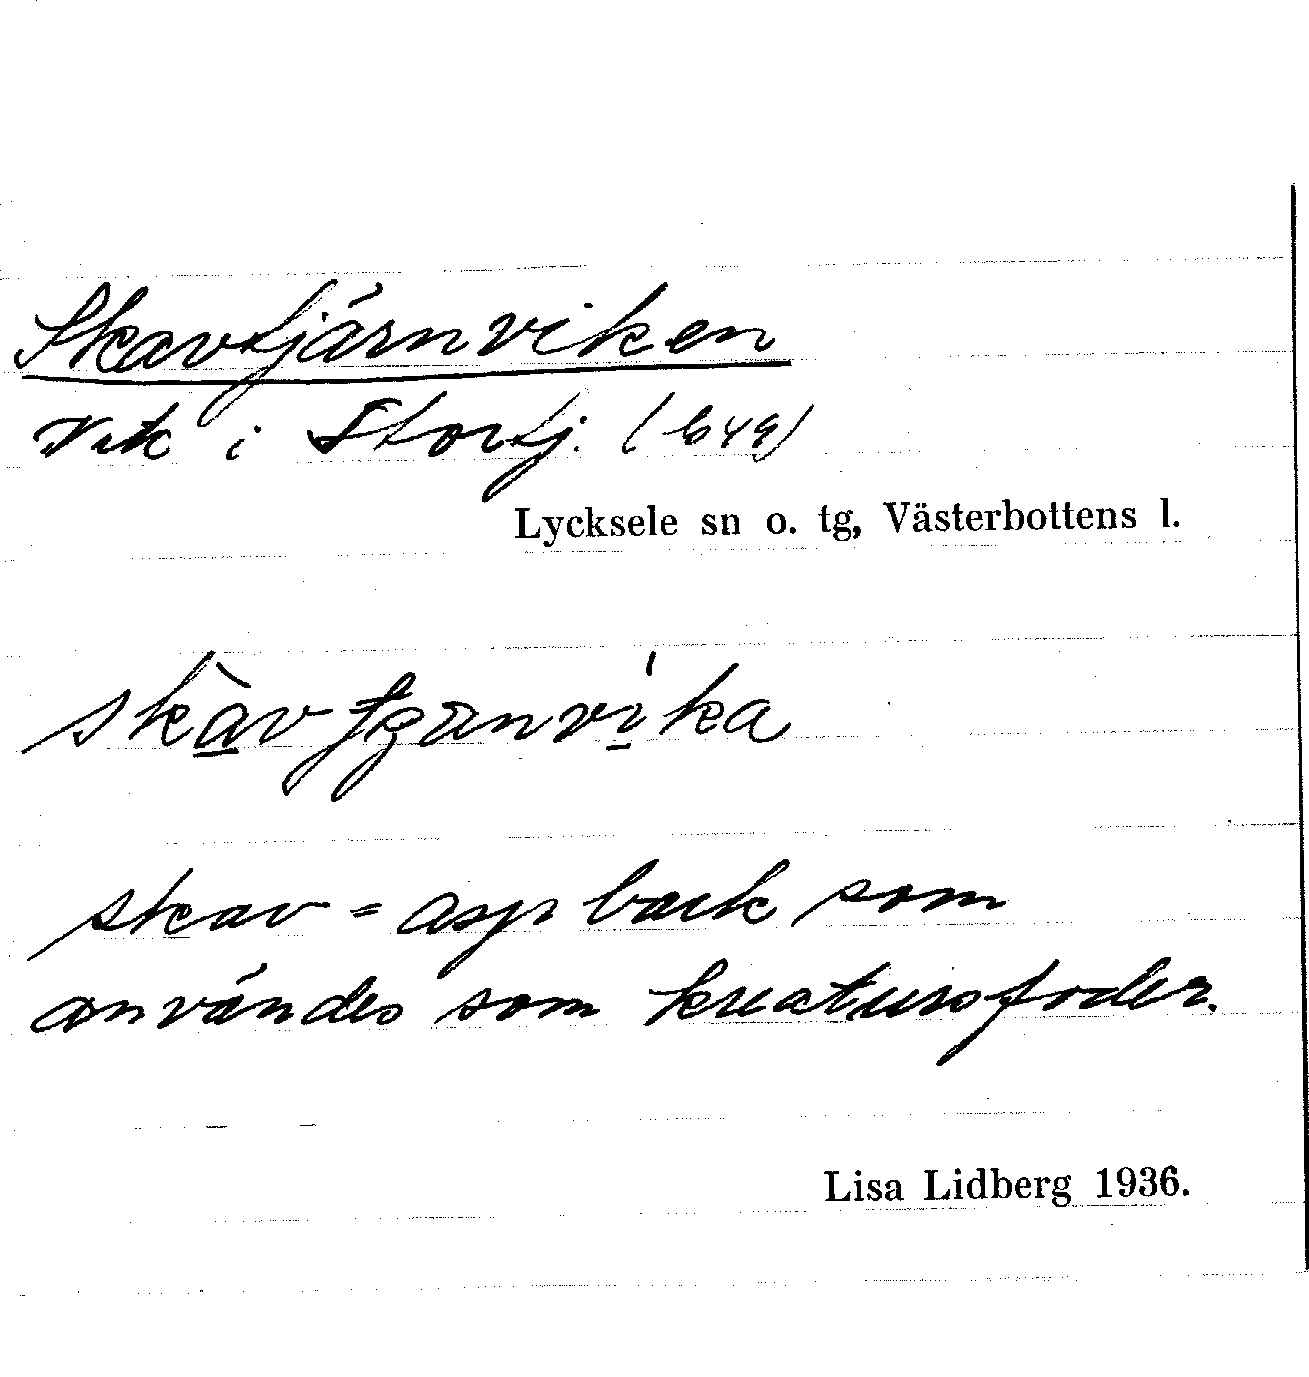 Skavtjärnviken
Vik i Stortj. (649)
Lycksele sn o. tg, Västerbottens l.
skav = asp bark som
användes som kreatursfoder.
Lisa Lidberg 1936.